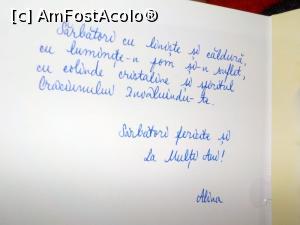 [c] AmFostAcolo®
Sărbători cu liniște și căldură,
cu luminițe-n pom și-n suflet,
cu colinde cristaline și spiritul
Crăciunului învăluindu-te.
Sărbători fericite și
La Mulți Ani!
Alina